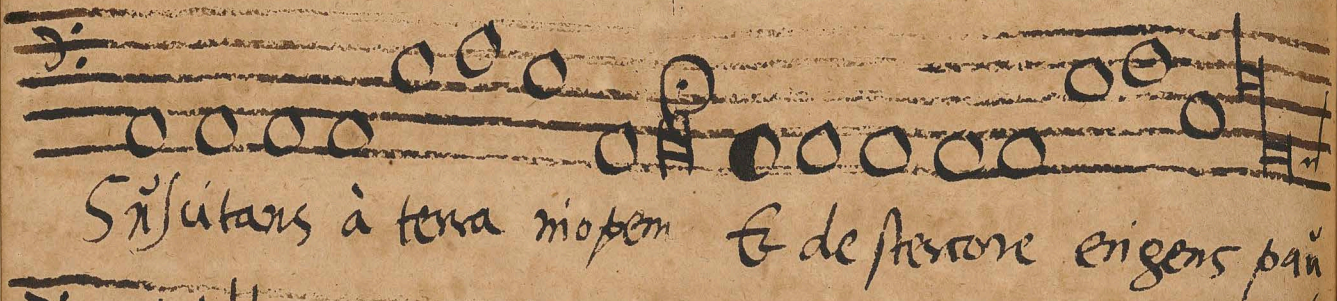 Suscitans à terra inopem Et de stercore erigens pau